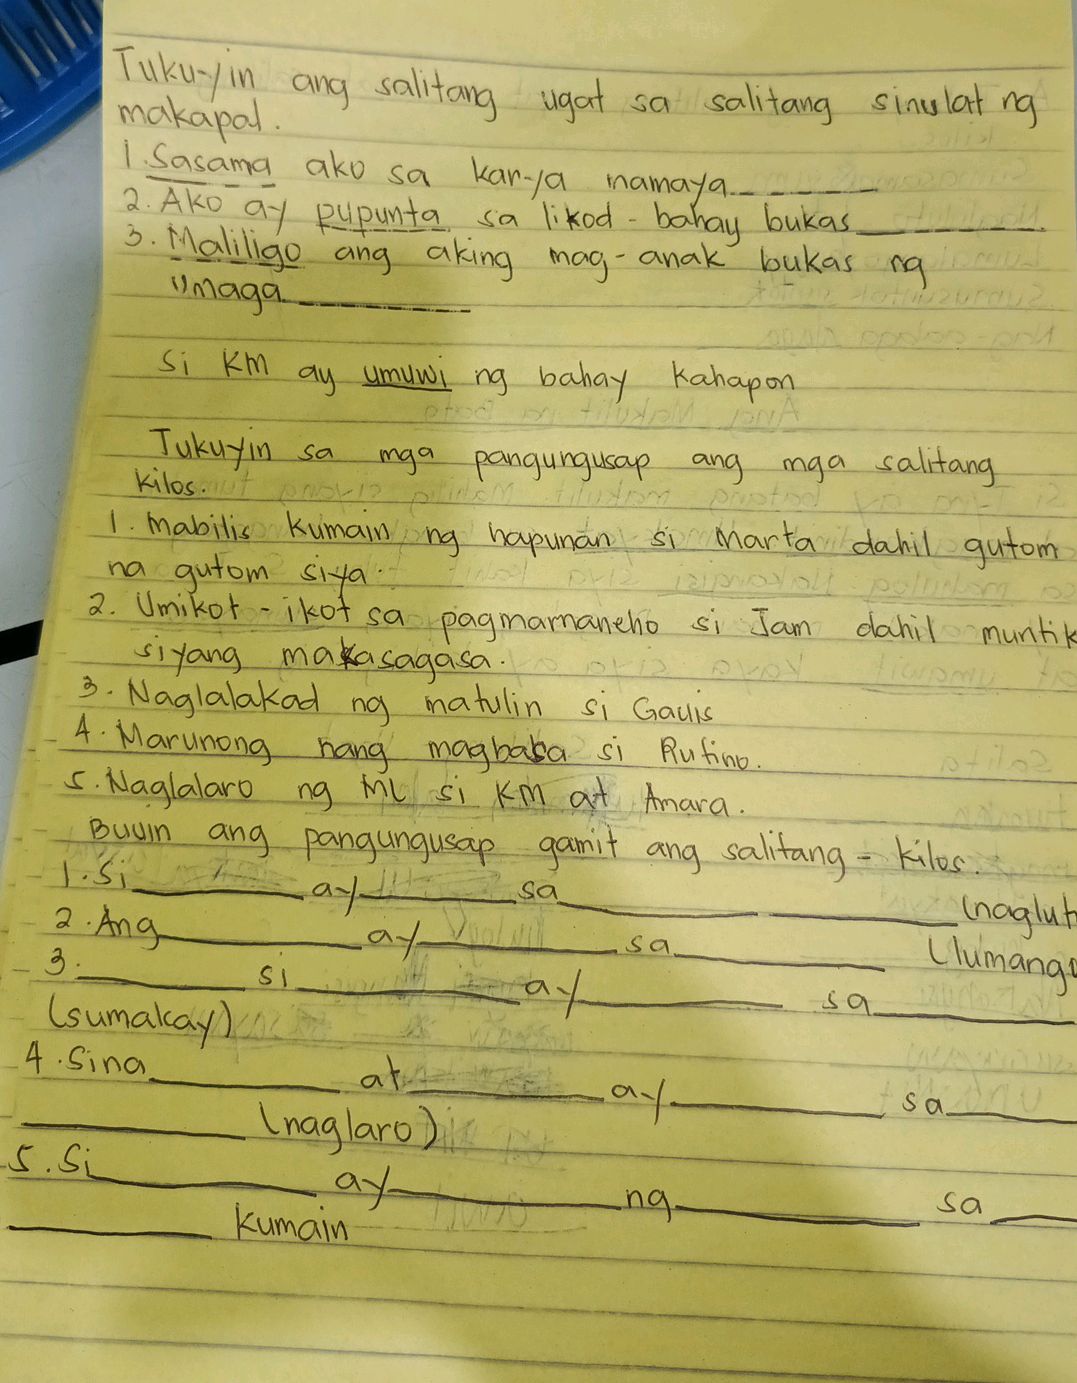 Tukuyin ang salitang ugat sa salitang sinulat ng
makapal.
1. Sasama ako sa kanya mamaya______
2. Ako ay pupunta sa likod-bahay bukas______.
3. Maliligo ang aking mag-anak bukas ng
umaga______
Si KM ay umuwi ng bahay kahapon
Tukuyin sa mga pangungusap ang mga salitang
kilos.
1. Mabilis kumain ng hapunan si Marta dahil gutom
na gutom siya.
2. Umikot-ikot sa pagmamaneho si Jam dahil muntik
siyang makasagasa.
3. Naglalakad ng matulin si
4. Marunong nang magbasa si Rufino.
5. Naglalaro ng ML si KM at Amara.
Buuin ang pangungusap gamit ang salitang-kilos.
1. Si______ay______sa______ ______(naglut
2. Ang______ay______sa______ (lumang
3. ______si______ay______ sa______
(sumakay)
4. Sina______ at______ay______ sa______
______ (naglaro)
5. Si______ ay______ng______ sa______
______ kumain